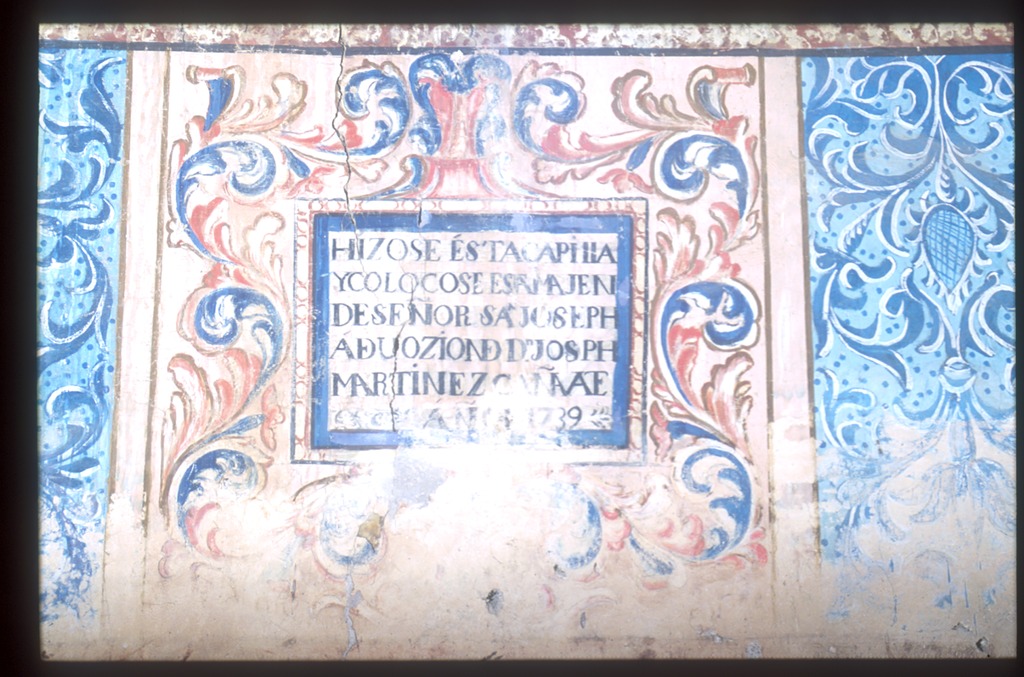 HIZOSE ÉSTA CAPILLA
Y COLOCOSE ES IMAJEN
DE SEÑOR SÃ JOSEPH
A DUOZION D Dº JOSPH
MARTÍNEZ
1739